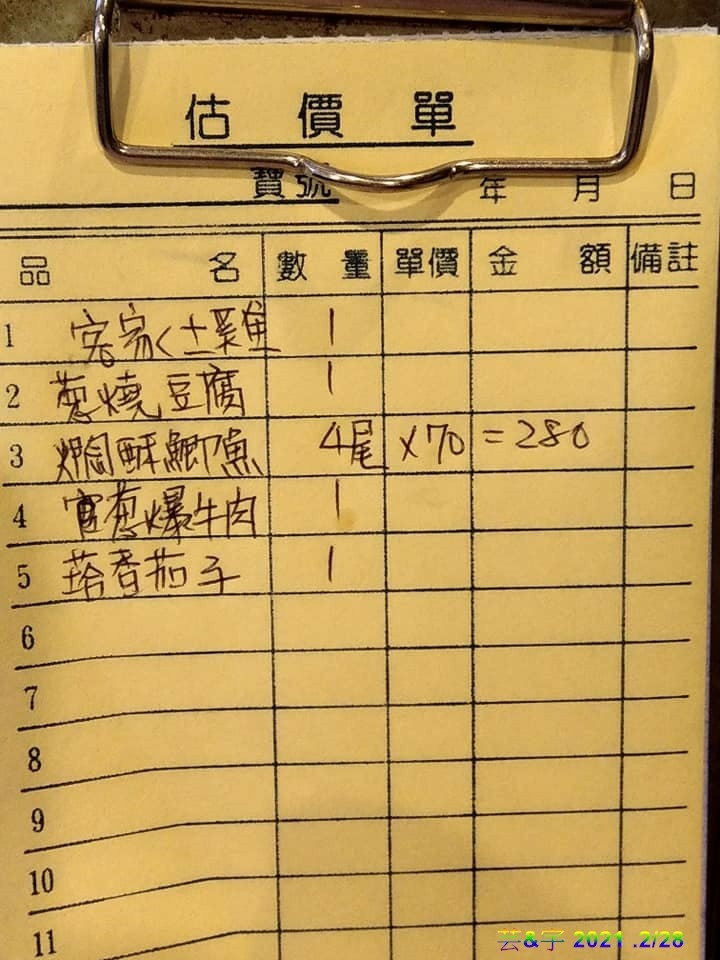 估價單
寶號 年 月 日
品名 數量 單價 金額 備註
1 客家ㄑ土雞 1
2 蔥燒豆腐 1
3 燜酥鯽魚 4尾 x70 =280
4 宮蔥爆牛肉 1
5 塔香茄子 1
6
7
8
9
10
11
芸&宇 2021 .2/28